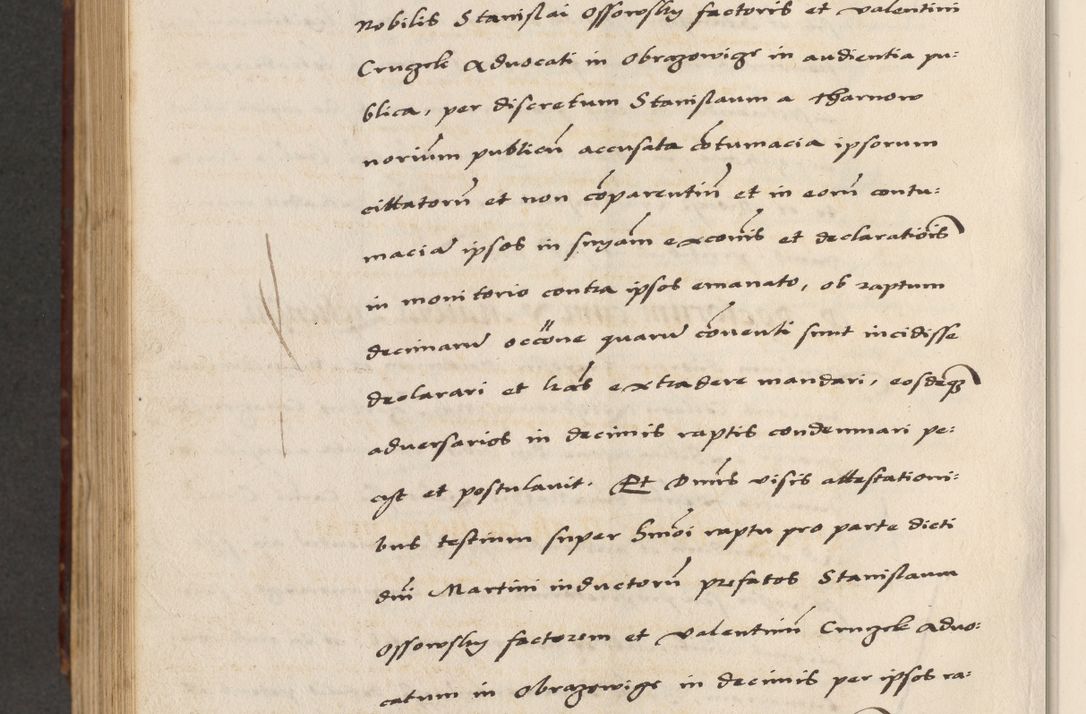 Nobilis Stanislai Ossowsky factoris et Valentini
Cruzek Advocati in Obrazowicze in audientia pu:
blica, per discretum Stanislaum a Tharnow
norium publicū accusata cōtumacia ipsorum
cittatorū et non cōparentiū et in eorū contu:
maciā ipsos in snyam exconis et declarationis
in monitorio contra ipsos emanato, ob raptum
decimarū occōne quarū cōventi sunt incidisse
declarari et lras extradere mandari, eosdemq3
adversarios in decimis raptis condemnari pe:
cyt et postulavit. Et Dnus visis attestationi:
bus testium super hmōi raptu pro parte dicti
dni Martini inductorū prefatos Stanislaum
Ossowsky factorem et Valentinū Cruzek Advo:
catum in Obrazowicze in decimis per ipsos ra: